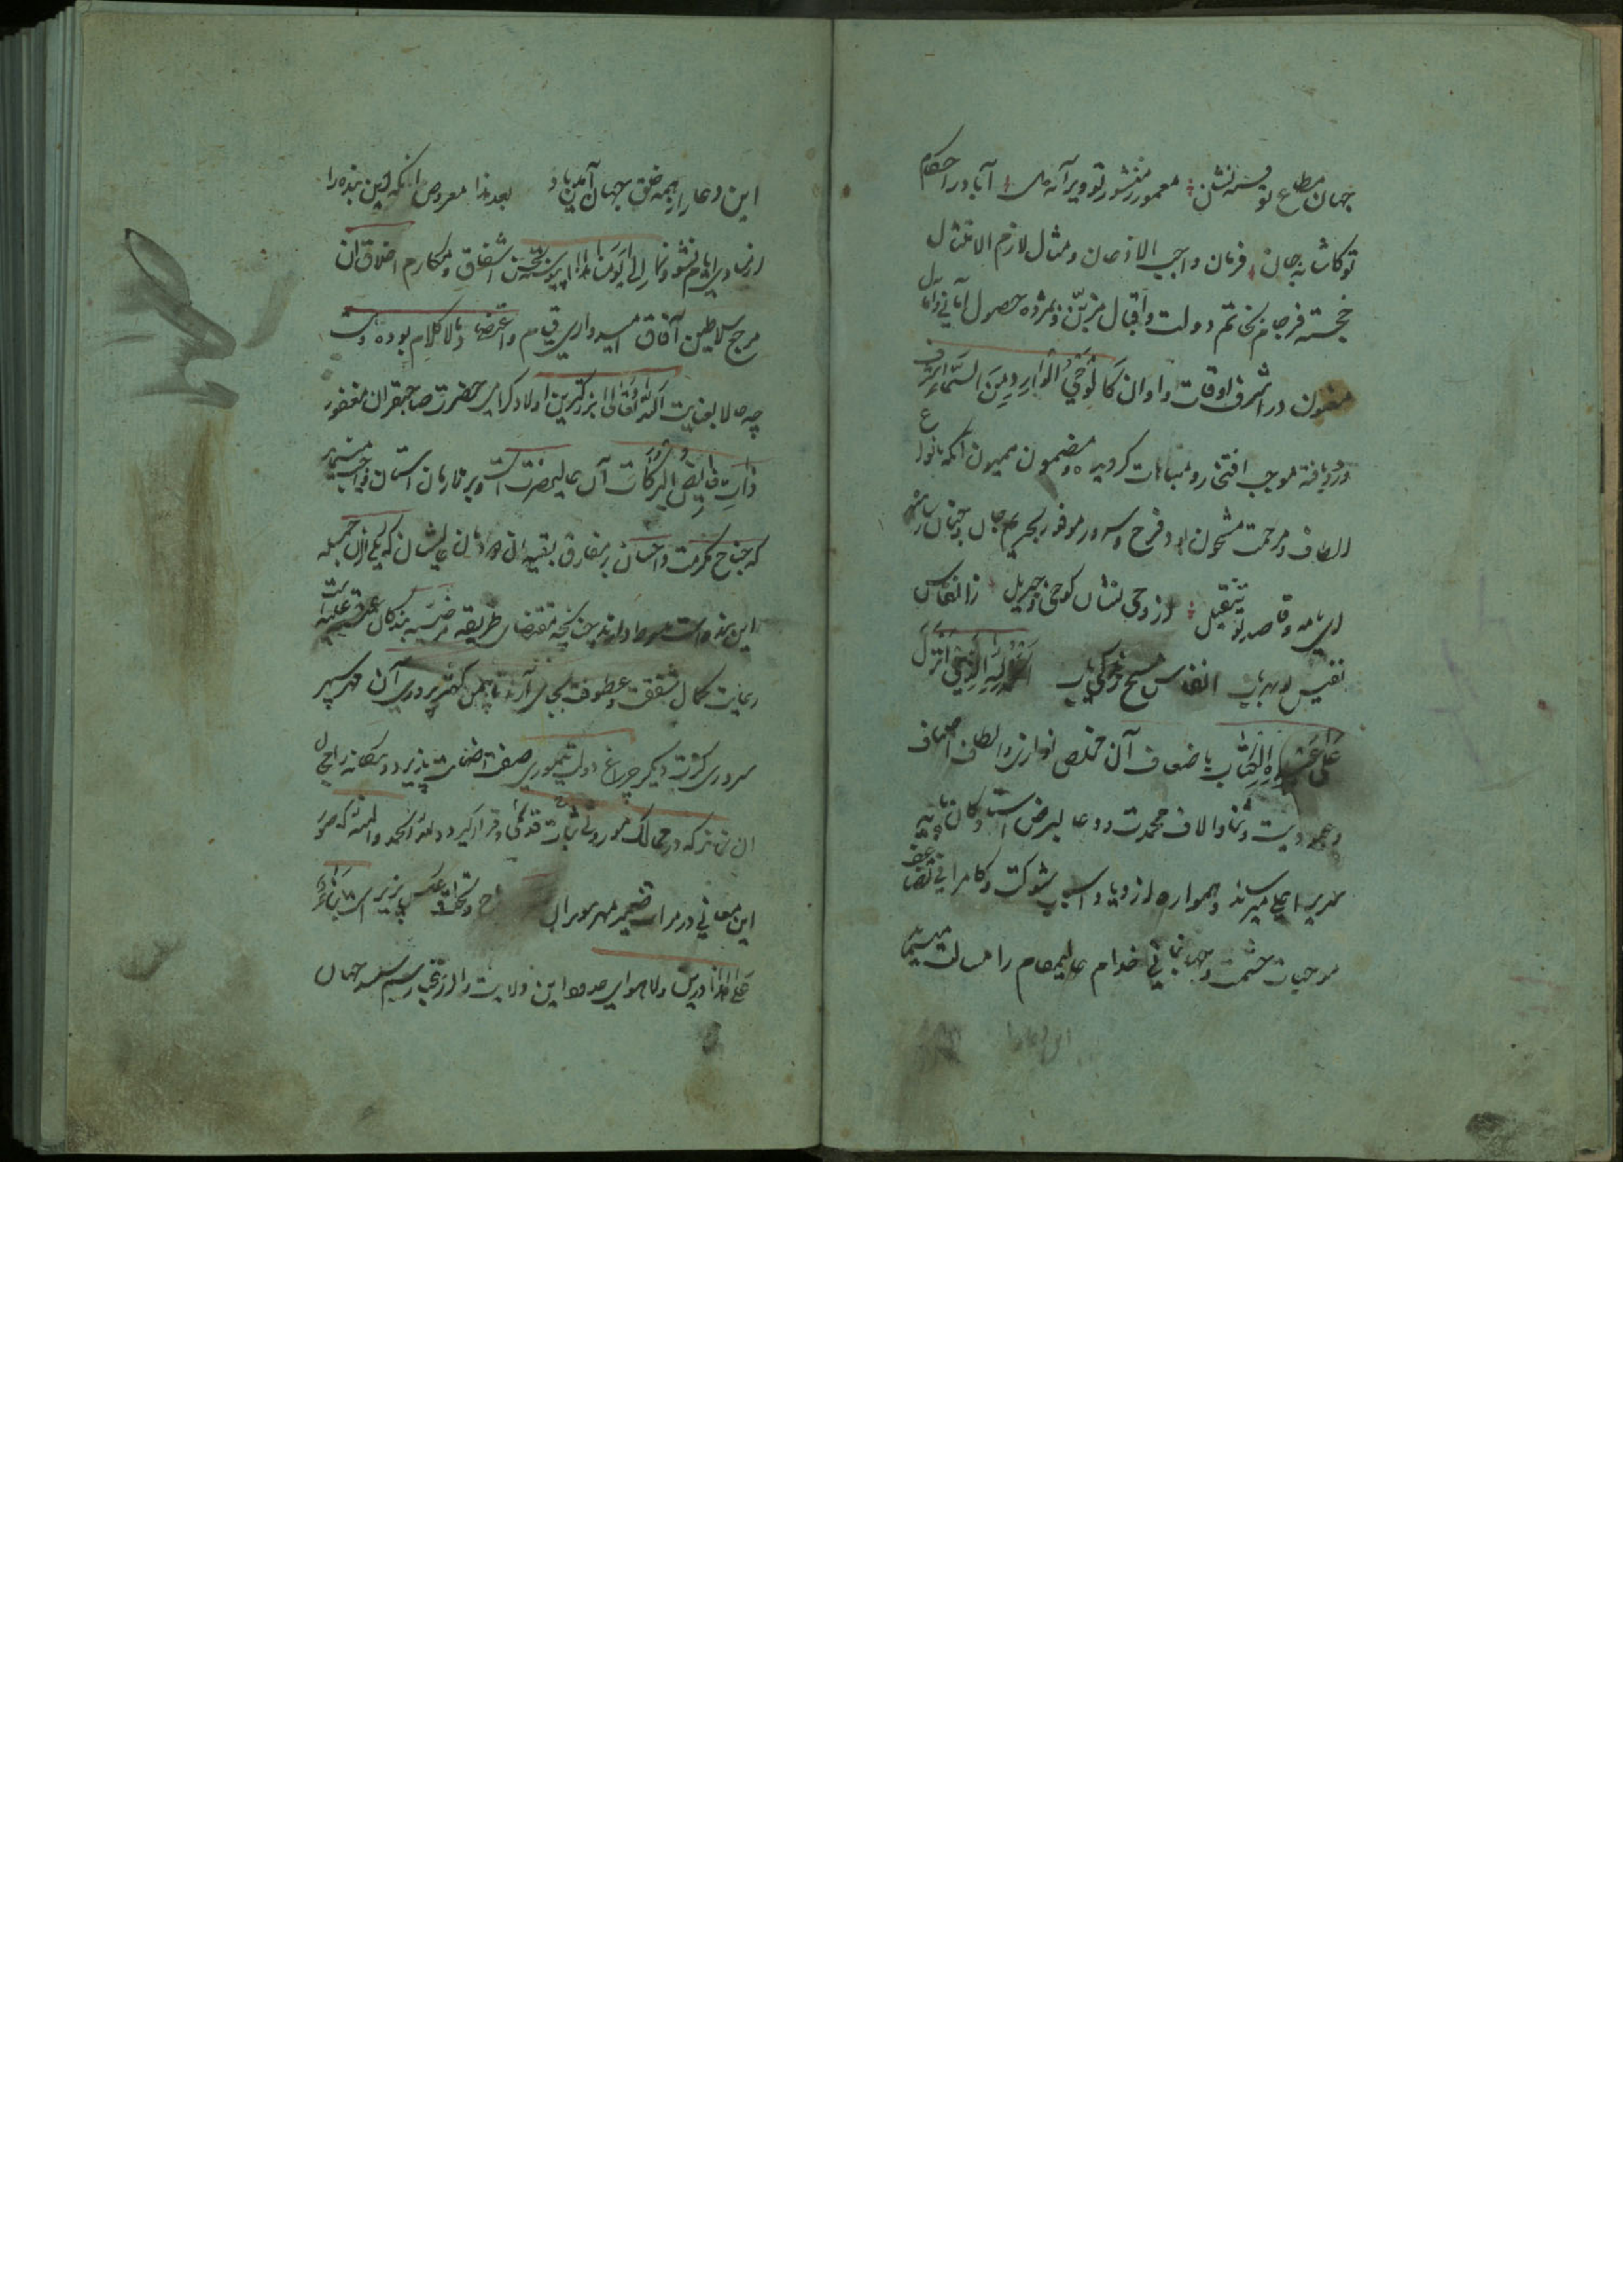 جهان مطاع تو نشن معمور ز منشور تو ویرانه آباد در احکام
تو کاشانه جان فرمان واجب الاذعان و مثال لازم الامتثال
خجسته فرجام بخاتم دولت و اقبال مزین و بمژده حصول امانی و آمال
مقرون در اشرف اوقات و اوان کالوحی الوارد من السماء شرف
ورود یافته موجب افتخار و مباهات کردیده و مضمون میمون آنکه بانواع
الطاف و مرحمت مشحون بود فرح و سرور موفور بحریم جان و جنان رسانید
ای نامه و قاصد تو وحی نشان کوحی و جبریل ز انفاس
نفیس انفاس مسیح الحمد لله الذی انزل
علی عبده الکتاب باضعاف آن مخلص نوازی و الطاف اصناف
و عبودیت و ثنا و آلاف محمدت و دعا بعرض استادکان پایه
سریر اعلی میرساند و همواره ازدیاد اسباب شوکت و کامرانی و تضاعف
موجبات حشمت و جهانبانی خدام عالیمقام را مسالت مینماید
این دعا را
این دعا را از همه خلق جهان آمین باد بعد هذا معروض آنکه این بنده را
از مبادی ایام نشو و نما الی یومنا هذا پیوسته بحسن اشفاق و مکارم اخلاق آن
مرجع سلاطین آفاق امیدواری تمام و اعتضاد مالا کلام بوده و هست
چه حالا بعنایت الله تعالی بزرکترین اولاد کرامی حضرت صاحبقران مغفور
ذات فایض البرکات آن عالیحضرت است و بر ملازمان آستان واجب مینماید
که جناح مکرمت و احسان بر مفارق بقیه آن دودمان عالیشان که یکی از آن جمله
این بنده است مبسوط دارند چنانچه مقتضای طریقه مرضیه بندکان عتبه علیه است
رعایت کمال شفقت و عطوفت بجای آرند تا بیمن کهتر پروری آن مهر سپهر
سروری کرت دیکر چراغ دولت تیموری صفت اضائت پذیرد و یکانه
آن که در ممالک موروثی ثبات قدمی و قرار کیرد و لله الحمد و المنه که صور
این معانی در مرآت ضمیر مهر عکس پذیر است بناء
علی هذا درین ولا هوای حدود این ولایت جهان